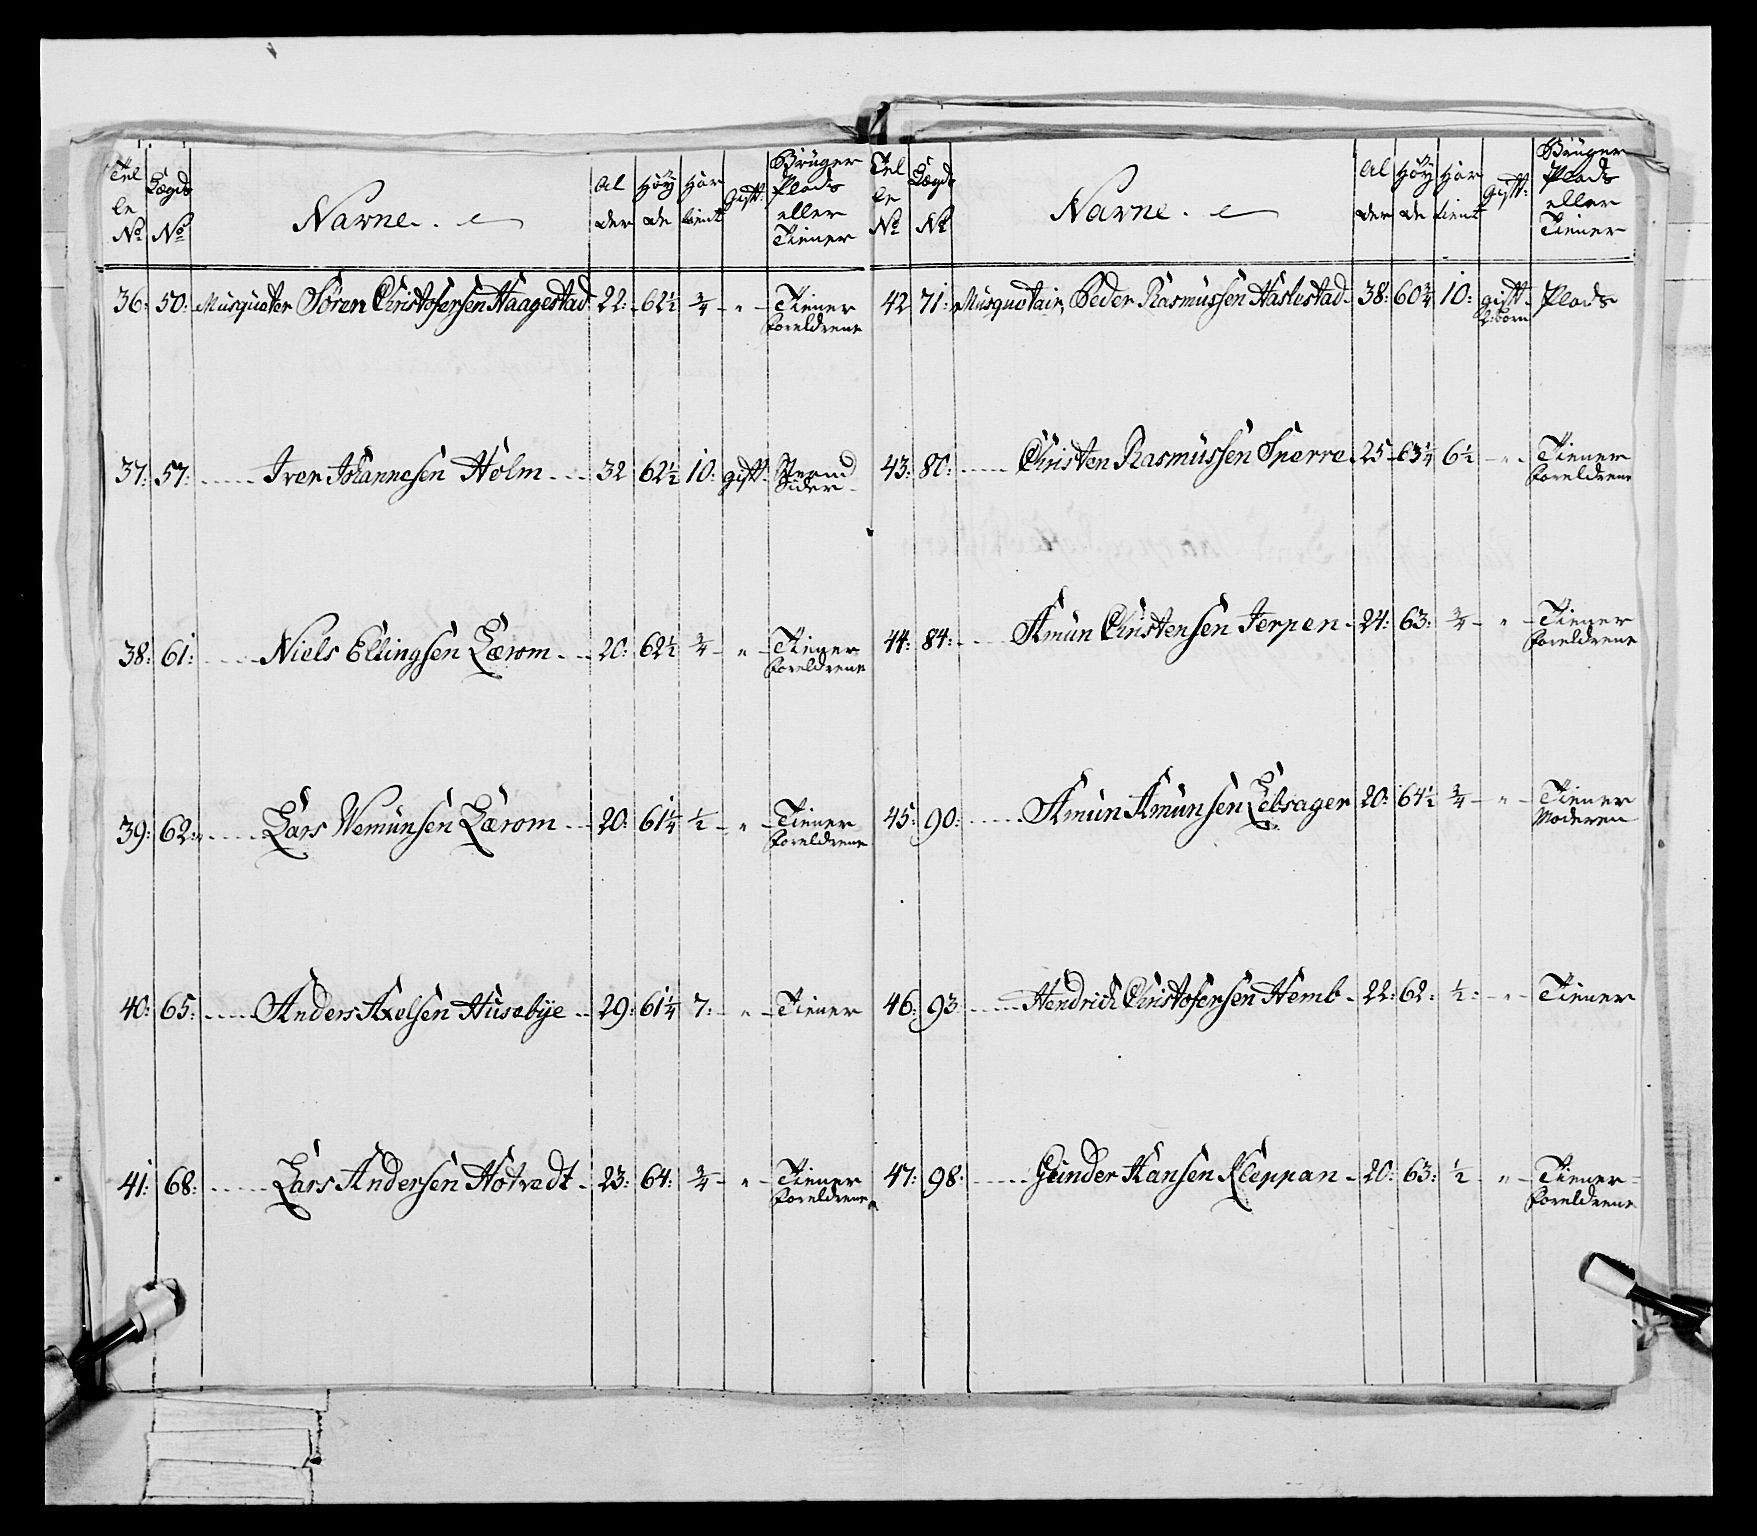 Tel Lægds Al Høy Har Gift: Brüger
le Navne. der de tient Plads
No No eller
Tiener
36: 50: Musqueter Søren Christofersen Haagestad 22: 62½ ¾ - " - Tiener
foreldrene
37: 57: Iver Johannesen Holm 32 62½ 10: gift: Strand
Sider
38: 61: Niels Ellingsen Lærom 20: 62½ ¾ - " - Tiener
foreldrene
39: 62: Lars Wemünsen Lærom 20: 61¼ ½ - " - Tiener
foreldrene
40: 65: Anders Axelsen Husebÿe 29: 61¼ 7: - " - Tiener
41: 68: Lars Andersen Hotvedt 23: 64: ¾ - " - Tiener
foreldrene
Tel Lægds Al Høy Har Gift: Brüger
le Navne. der de tient Plads
No No eller
Tiener
42 71: Musquetair, Peder Rasmussen Haslestad 38: 60¾ 10: gift Plads
2: born
43: 80: Christen Rasmüssen Snerre 25 63¼ 6½ - " - Tiener
foreldrene
44: 84: Amün Christensen Jerpen 24: 63: ¾ - " - Tiener
foreldrene
45: 90: Amün Amünsen Lebsager 20: 64½ ¾ - " - Tiener
Moderen
46: 93 Hendrich Christofersen Hemb 22: 62: ½: - " - Tiener
47: 98: Günder Hansen Kleppan 20: 63: ½ - " - Tiener
foreldrene